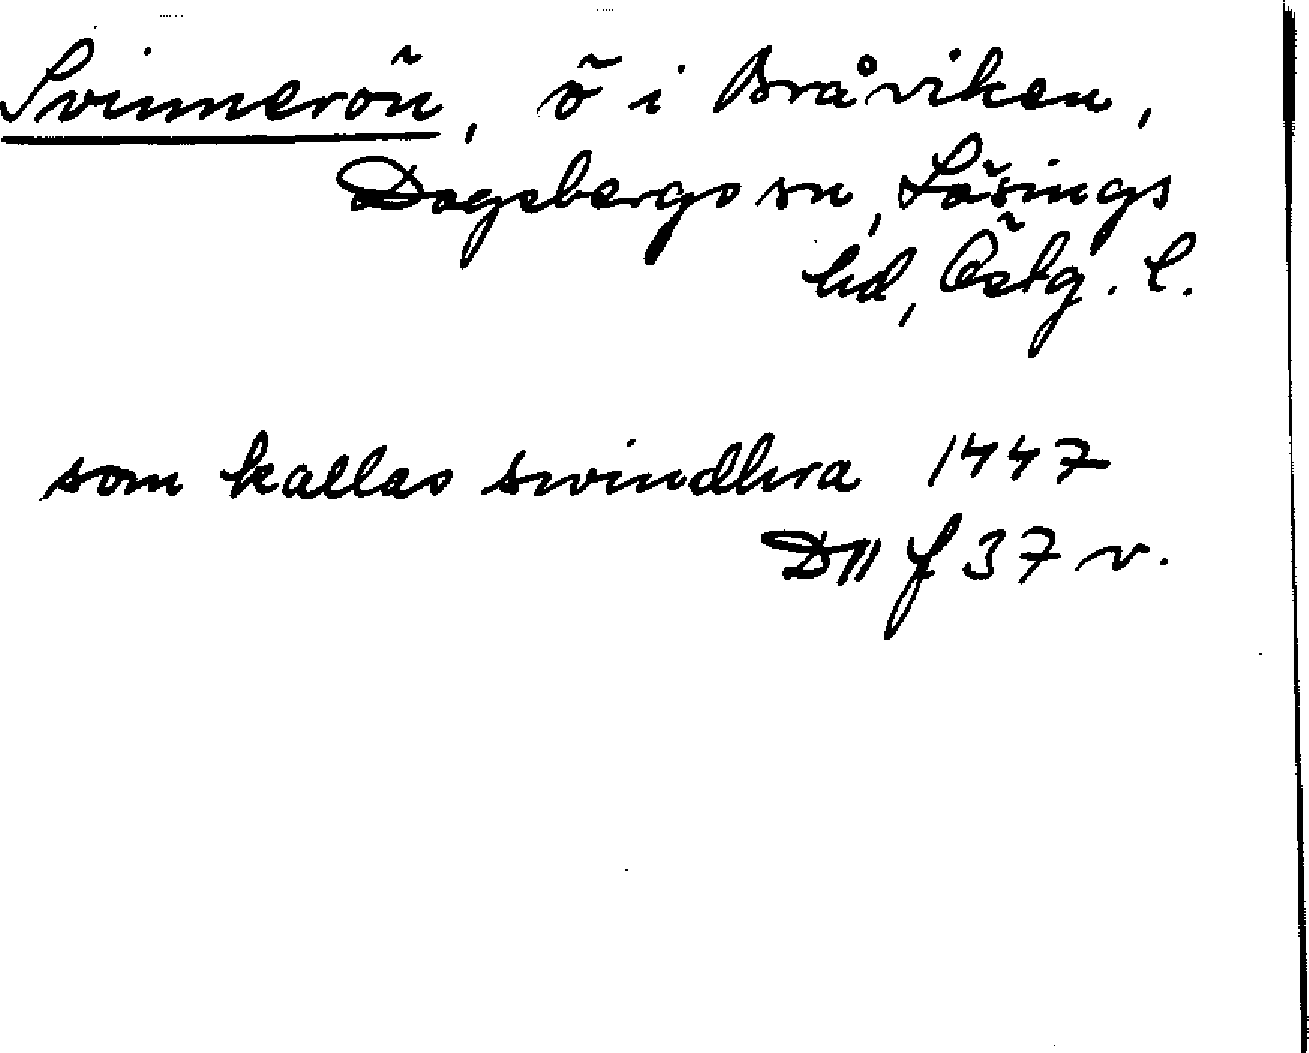 Svinnerön, ö i Bråviken,
Dagsbergs sn, Lösings
hd, Östg. l.
som kallas swindhra 1447
D11 f 37 v.